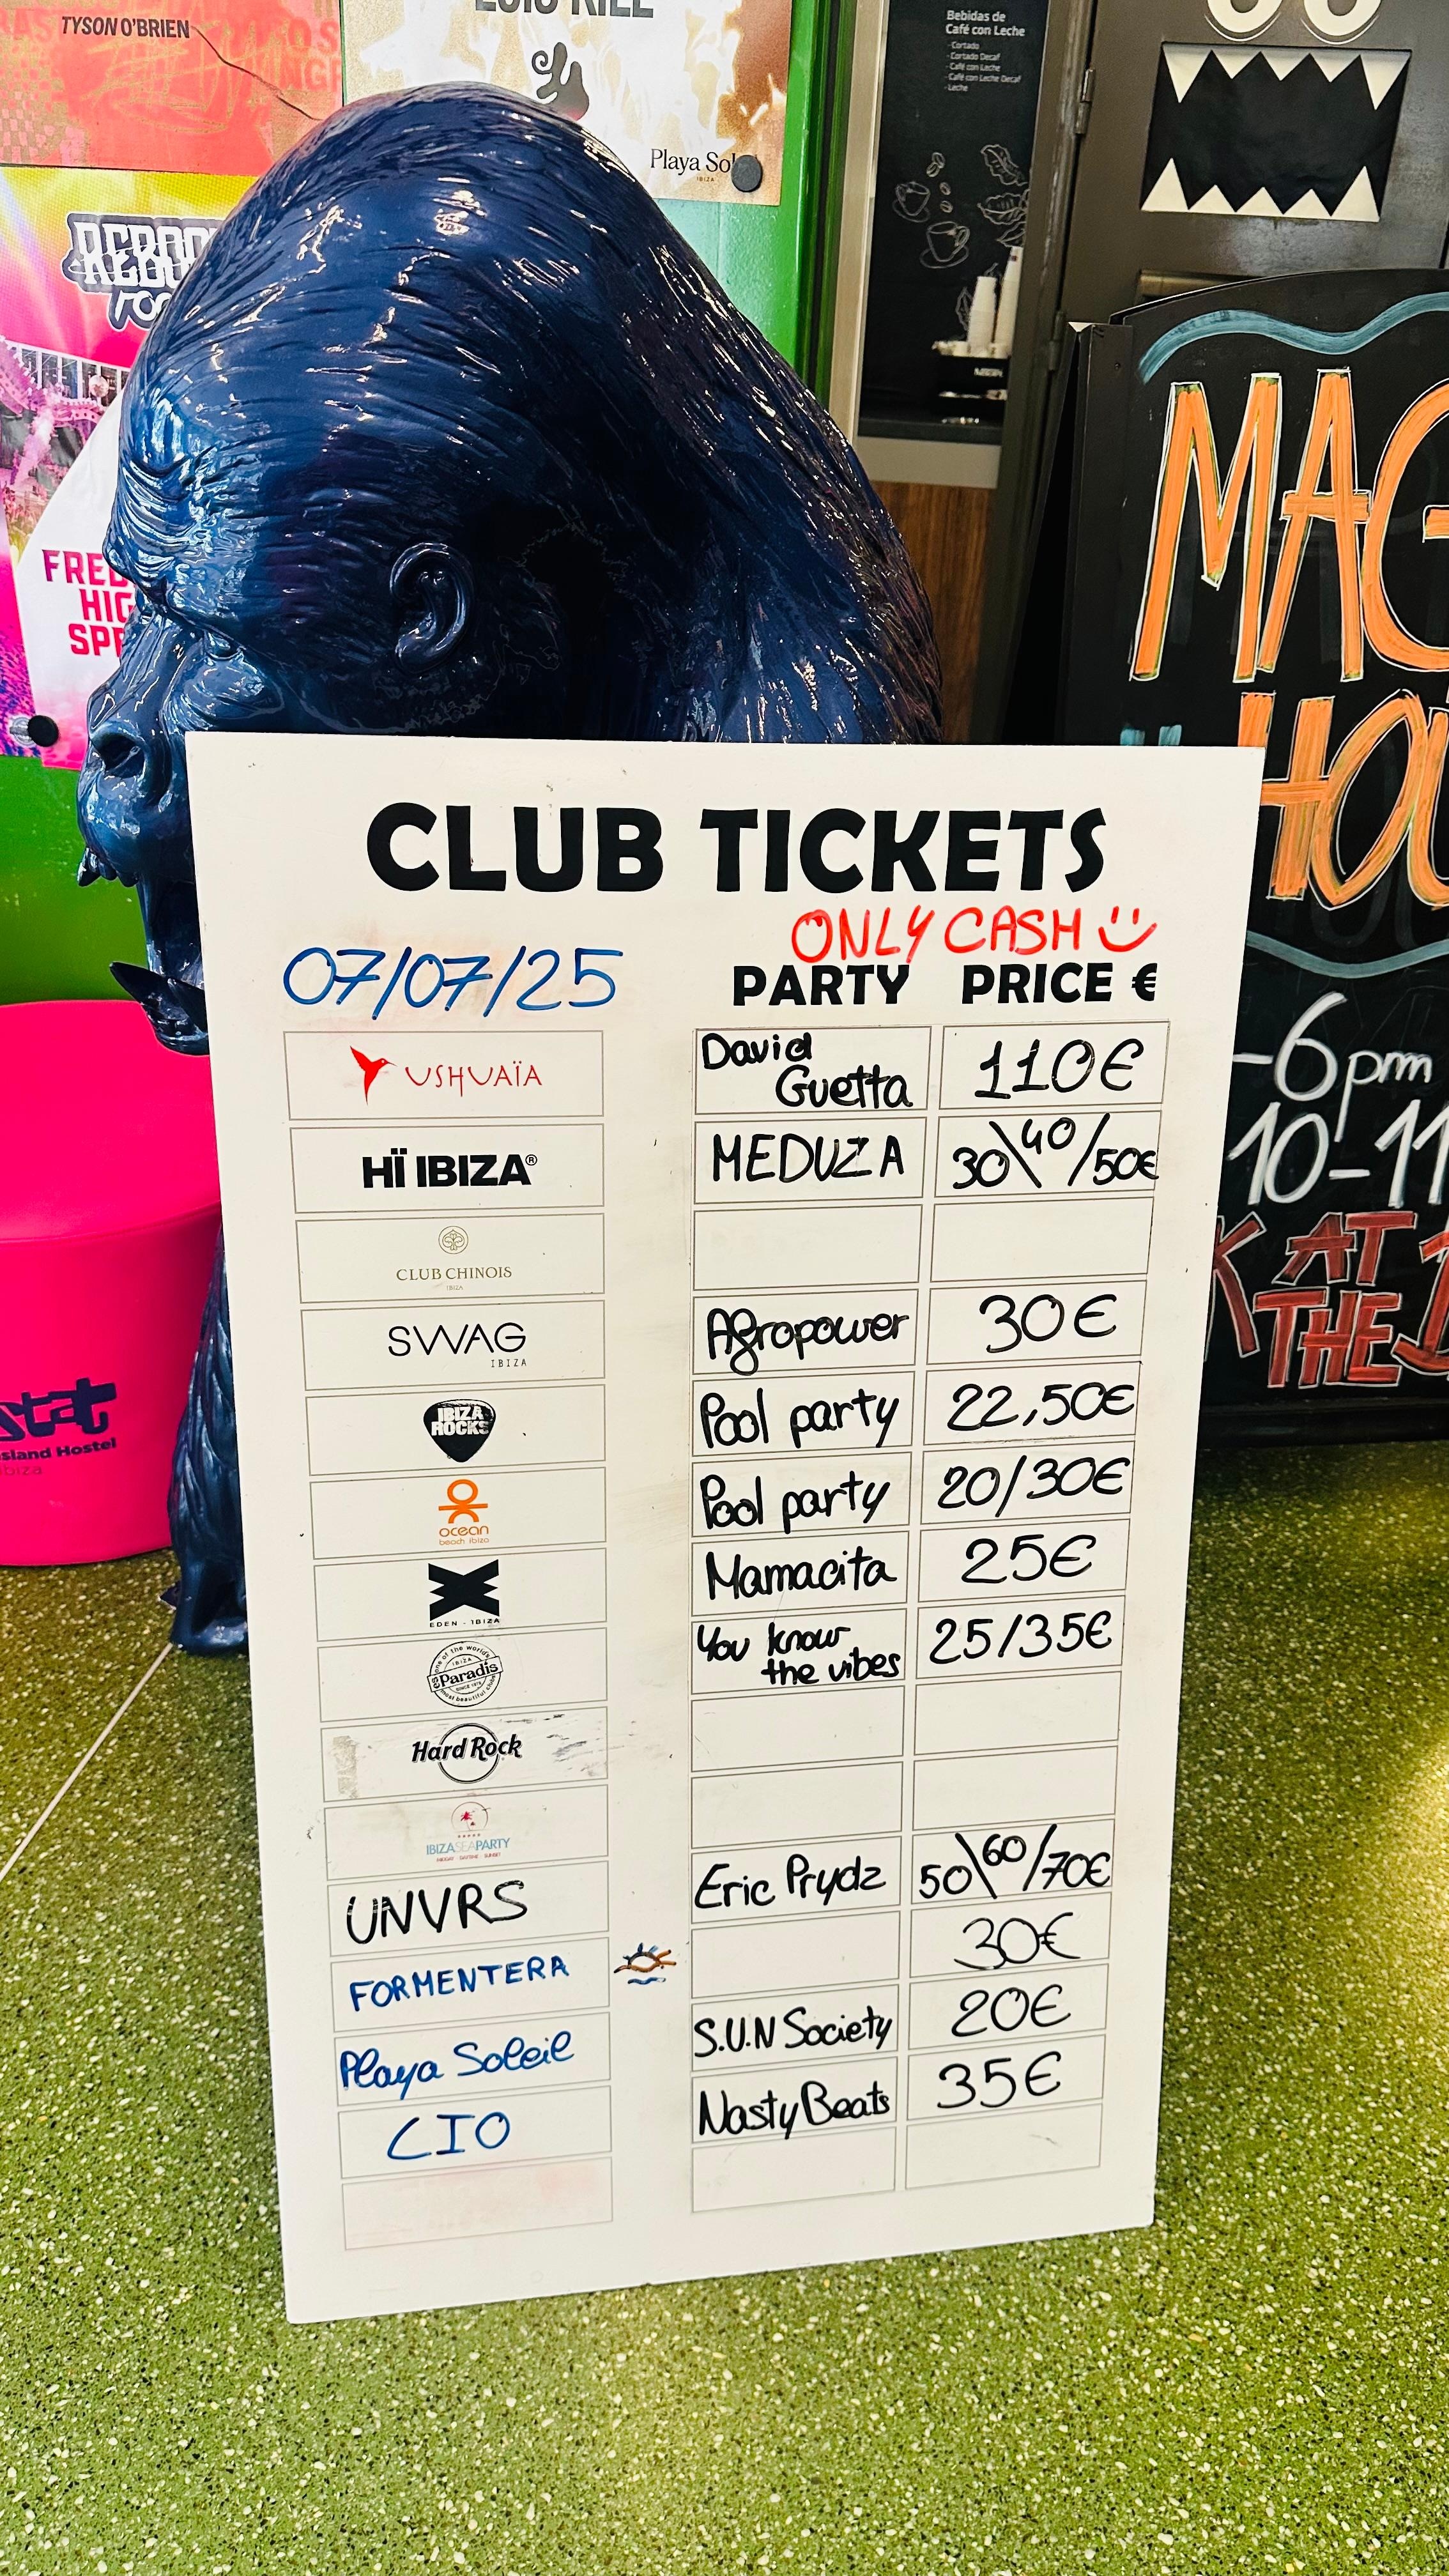 TYSON O'BRIEN
Playa Sol
IBIZA
Bebidas de
Café con Leche
· Cortado
· Cortado Decaf
· Café con Leche
· Café con Leche Decaf
· Leche
FRED
HIG
SPE
MAG
HOU
-6pm
10-11
K AT
THE
CLUB TICKETS
ONLY CASH
07/07/25 PARTY PRICE €
USHUAÏA David Guetta 110€
HÏ IBIZA® MEDUZA 30\40/50€
CLUB CHINOIS
IBIZA
SWAG IBIZA Agropower 30€
IBIZA ROCKS Pool party 22,50€
ocean beach ibiza Pool party 20/30€
EDEN - IBIZA Mamacita 25€
Paradis You know the vibes 25/35€
Hard Rock
IBIZA SEA PARTY
UNVRS Eric Prydz 50\60/70€
FORMENTERA 30€
Playa Soleil S.U.N Society 20€
CIO Nasty Beats 35€
sland Hostel
ibiza